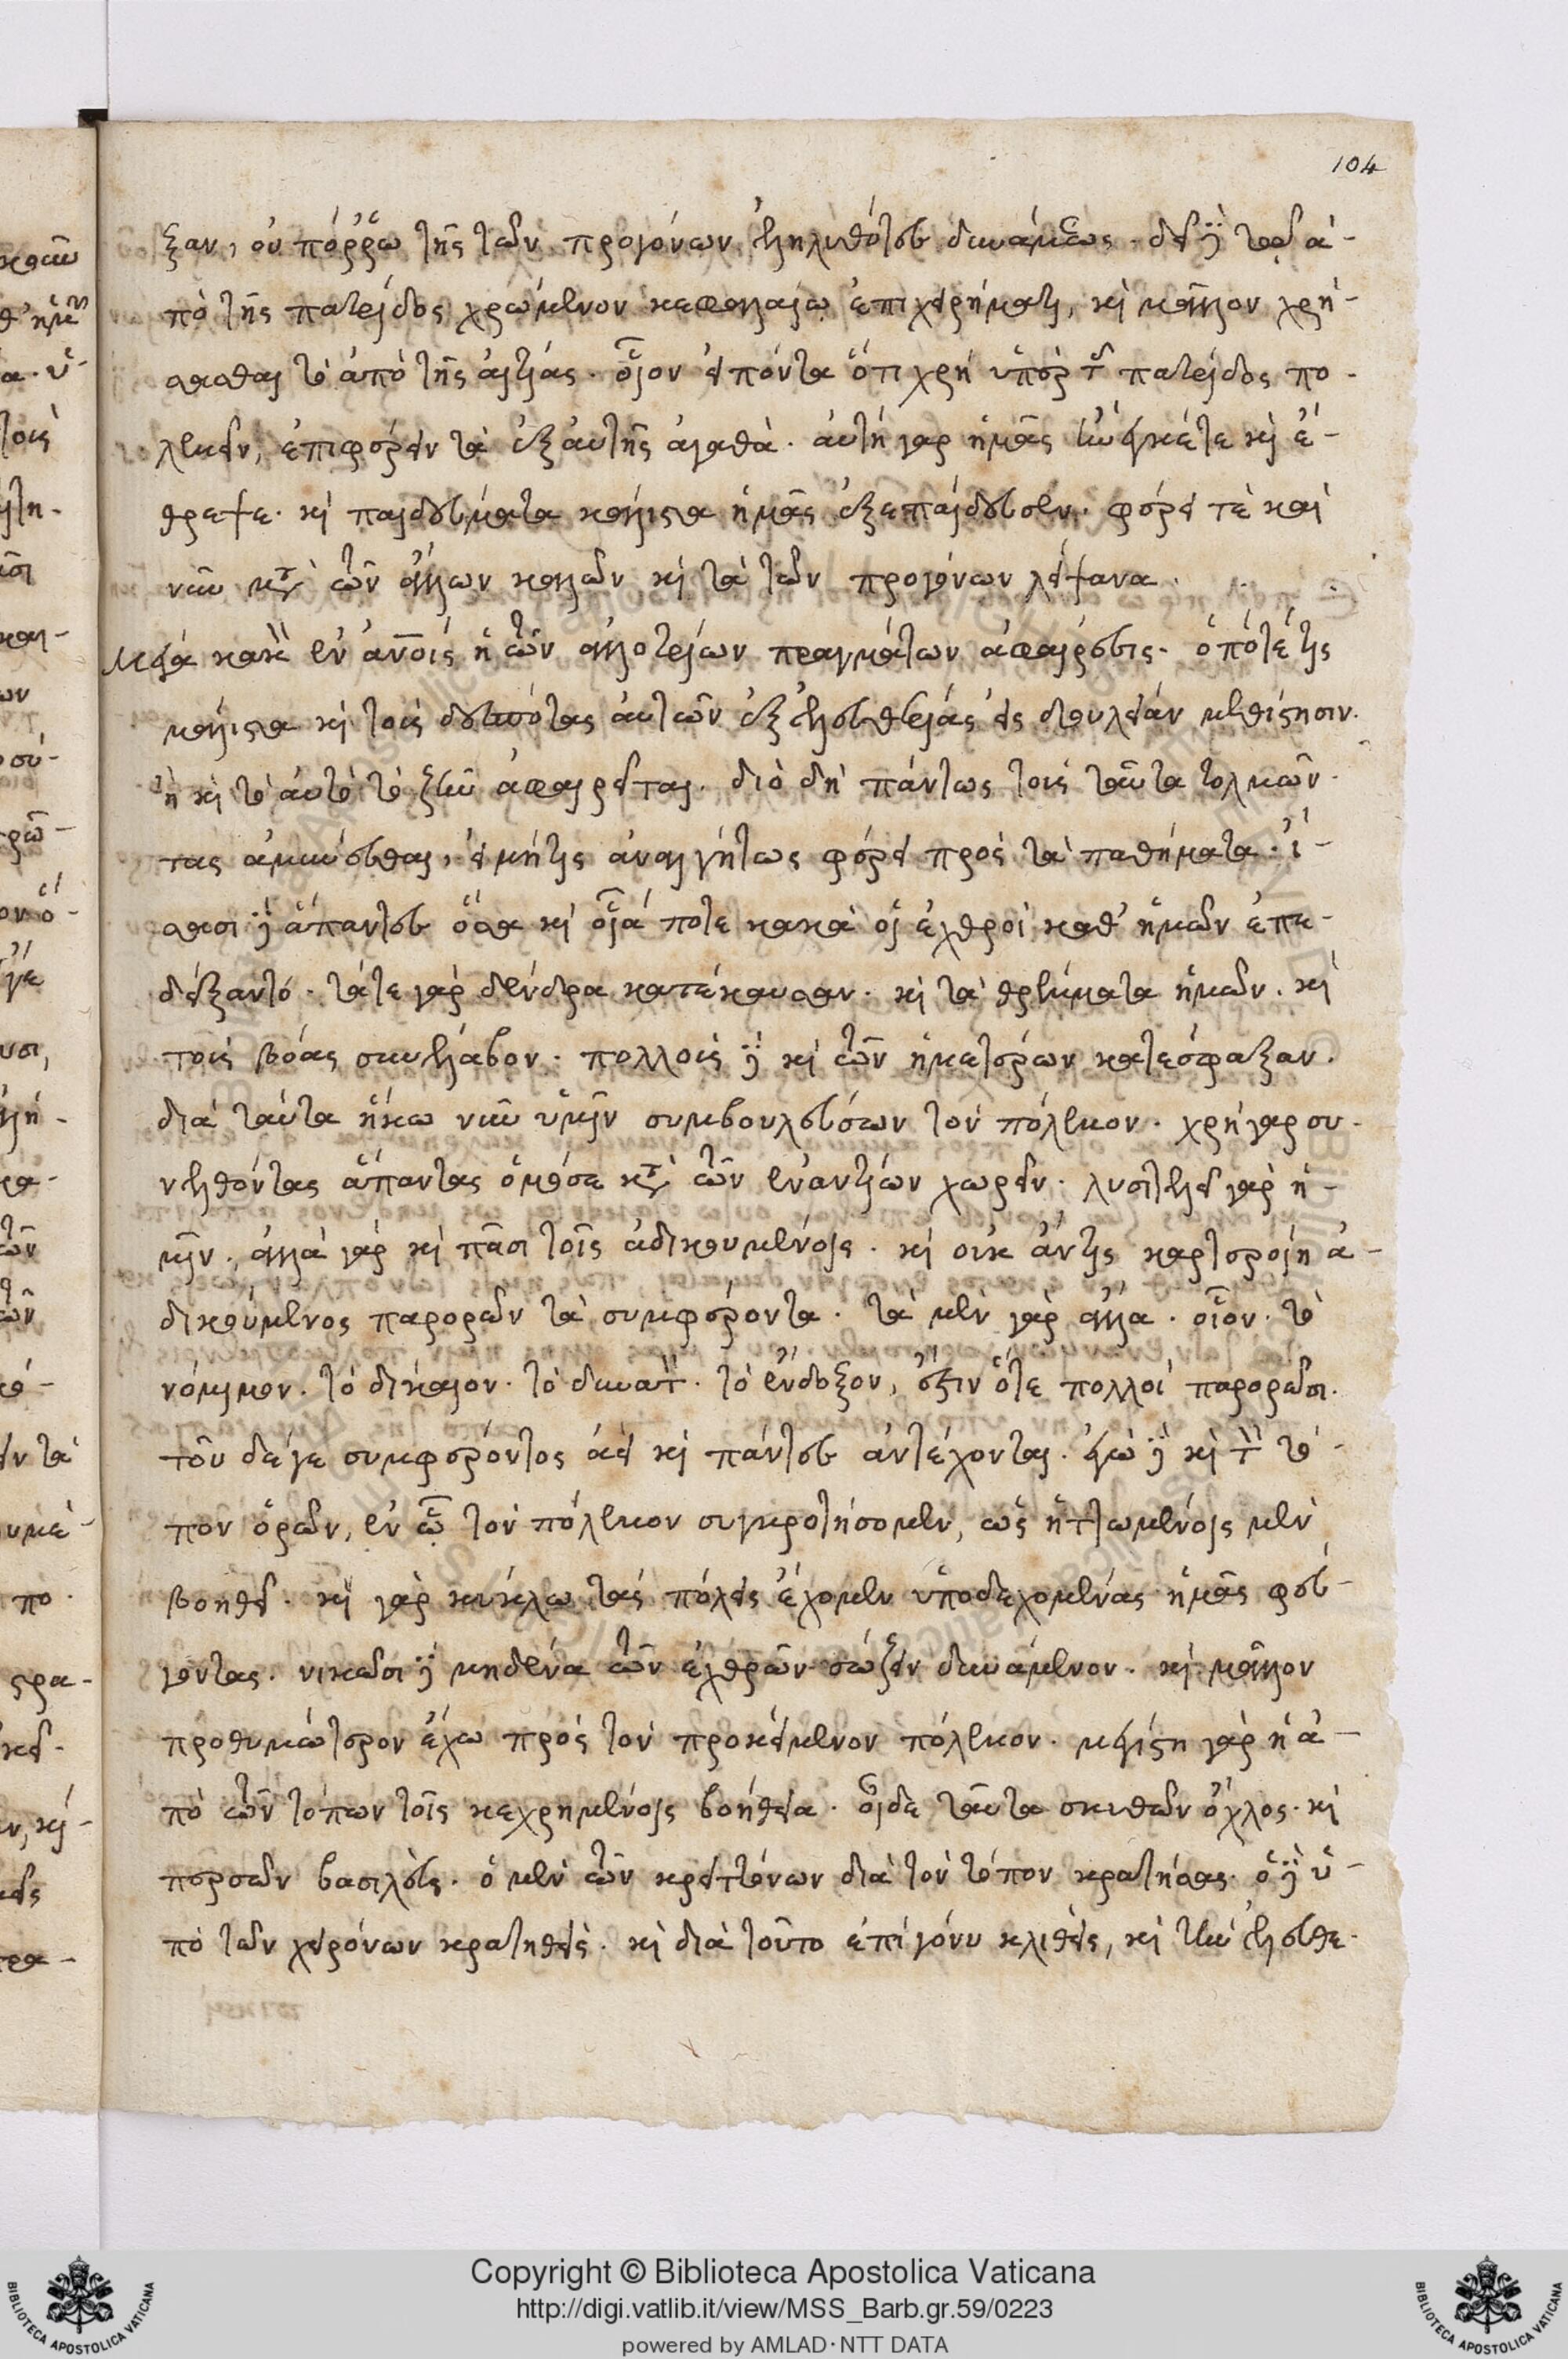 104
ξαν, οὐ πόρρω τῆς τῶν προγόνων ἐληλυθότες δυνάμεως. δεῖ δὲ τῷ ἀ-
πὸ τῆς πατρίδος χρώμενον κεφαλαίῳ ἐπιχειρήματι, κὶ μᾶλλον χρή-
σασθαι τὸ ἀπὸ τῆς αἰτίας. οἷον εἰπόντα ὅτι χρὴ ὑπὲρ τ πατρίδος πο-
λεμεῖν, ἐπιφέρειν τὰ ἐξ αὐτῆς ἀγαθά. αὐτὴ γαρ ἡμᾶς ἤνεγκέτε κὶ ἔ-
θρεψε. κὶ παιδεύματα κάλλιστα ἡμᾶς ἐξεπαίδευσεν. φέρει τὲ καὶ
νῦν μετὰ τῶν ἄλλων καλῶν κὶ τὰ τῶν προγόνων λείψανα.
Μέγα κακὸν ἐν ἀνοις ἡ τῶν ἀλλοτρίων πραγμάτων ἀφαίρεσις. ὁπότέ τις
μάλιστα κὶ τοὺς δεσπότας αὐτῶν ἐξ ἐλευθερίας εἰς δουλείαν μεθίστησιν.
ἢ κὶ τὸ αὐτὸ τὸ ζῆν ἀφαιρεῖται. διὸ δὴ πάντως τοὺς ταῦτα τολμῶν-
τας ἀμύνεσθαι, εἰ μήτις ἀναλγήτως φέρει πρὸς τὰ παθήματα. ἴ-
σασι δὲ ἅπαντες ὅσα κὶ οἷά ποτε κακὰ οἱ ἐχθροὶ καθ' ἡμῶν ἐπε-
δείξαντό. τάτε γὰρ δένδρα κατέκαυσαν. κὶ τὰ θρέμματα ἡμῶν. κὶ
τοὺς βόας συνέλαβον. πολλοὺς δὲ κὶ τῶν ἡμετέρων κατεσφαξαν.
διὰ ταύτα ἥκω νῦν ὑμῖν συμβουλεύσων τὸν πόλεμον. χρὴ γαρ συ-
νελθόντας ἅπαντας ὁμόσε κατὰ τῶν ἐναντίων χωρεῖν. λυσιτελεῖ γὰρ ἡ-
μῖν. ἀλλὰ γὰρ κὶ πᾶσι τοῖς ἀδικουμένοις. κὶ οὐκ ἄν τις καρτεροίη ἀ-
δικούμενος παρορῶν τὰ συμφέροντα. τὰ μὲν γὰρ ἄλλα. οἷον. τὸ
νόμιμον. τὸ δίκαιον. τὸ δυνατ. τὸ ἔνδοξον, ἔστιν ὅτε πολλοὶ παρορῶσι.
τοῦ δέγε συμφέροντος ἀεὶ κὶ πάντες ἀντέχονται. ἐγὼ δὲ κὶ τ τό-
πον ὁρῶν, ἐν ᾧ τὸν πόλεμον συγκροτήσομεν, ὡς ἡττωμένοις μὲν
βοηθεῖ. κὶ γὰρ κύκλω τὰς πόλεις ἔχομεν ὑποδεχομένας ἡμᾶς φεύ-
γοντας. νικῶσι δὲ μηδένα τῶν ἐχθρῶν σώζειν δυνάμενον. κὶ μᾶλλον
προθυμώτερον ἔχω πρὸς τὸν προκείμενον πόλεμον. μεγίστη γὰρ ἡ ἀ-
πὸ τῶν τόπων τοῖς κεχρημένοις βοήθεια. οἶδε ταῦτα σκυθῶν ὄχλος. κὶ
περσῶν βασιλεύς. ὁ μὲν τῶν κρειττόνων διὰ τὸν τόπον κρατήσας. ὁ δὲ ὑ-
πὸ τῶν χειρόνων κρατηθείς. κὶ διὰ τοῦτο ἐπὶ γόνυ κλιθείς, κὶ τὴν ἐλευθε-
Copyright © Biblioteca Apostolica Vaticana
http://digi.vatlib.it/view/MSS_Barb.gr.59/0223
powered by AMLAD·NTT DATA
BIBLIOTECA APOSTOLICA VATICANA
BIBLIOTECA APOSTOLICA VATICANA